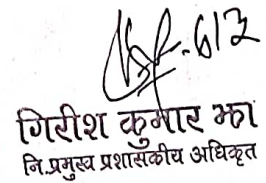 613
गिरीश कुमार झा
नि.प्रमुख प्रशासकीय अधिकृत